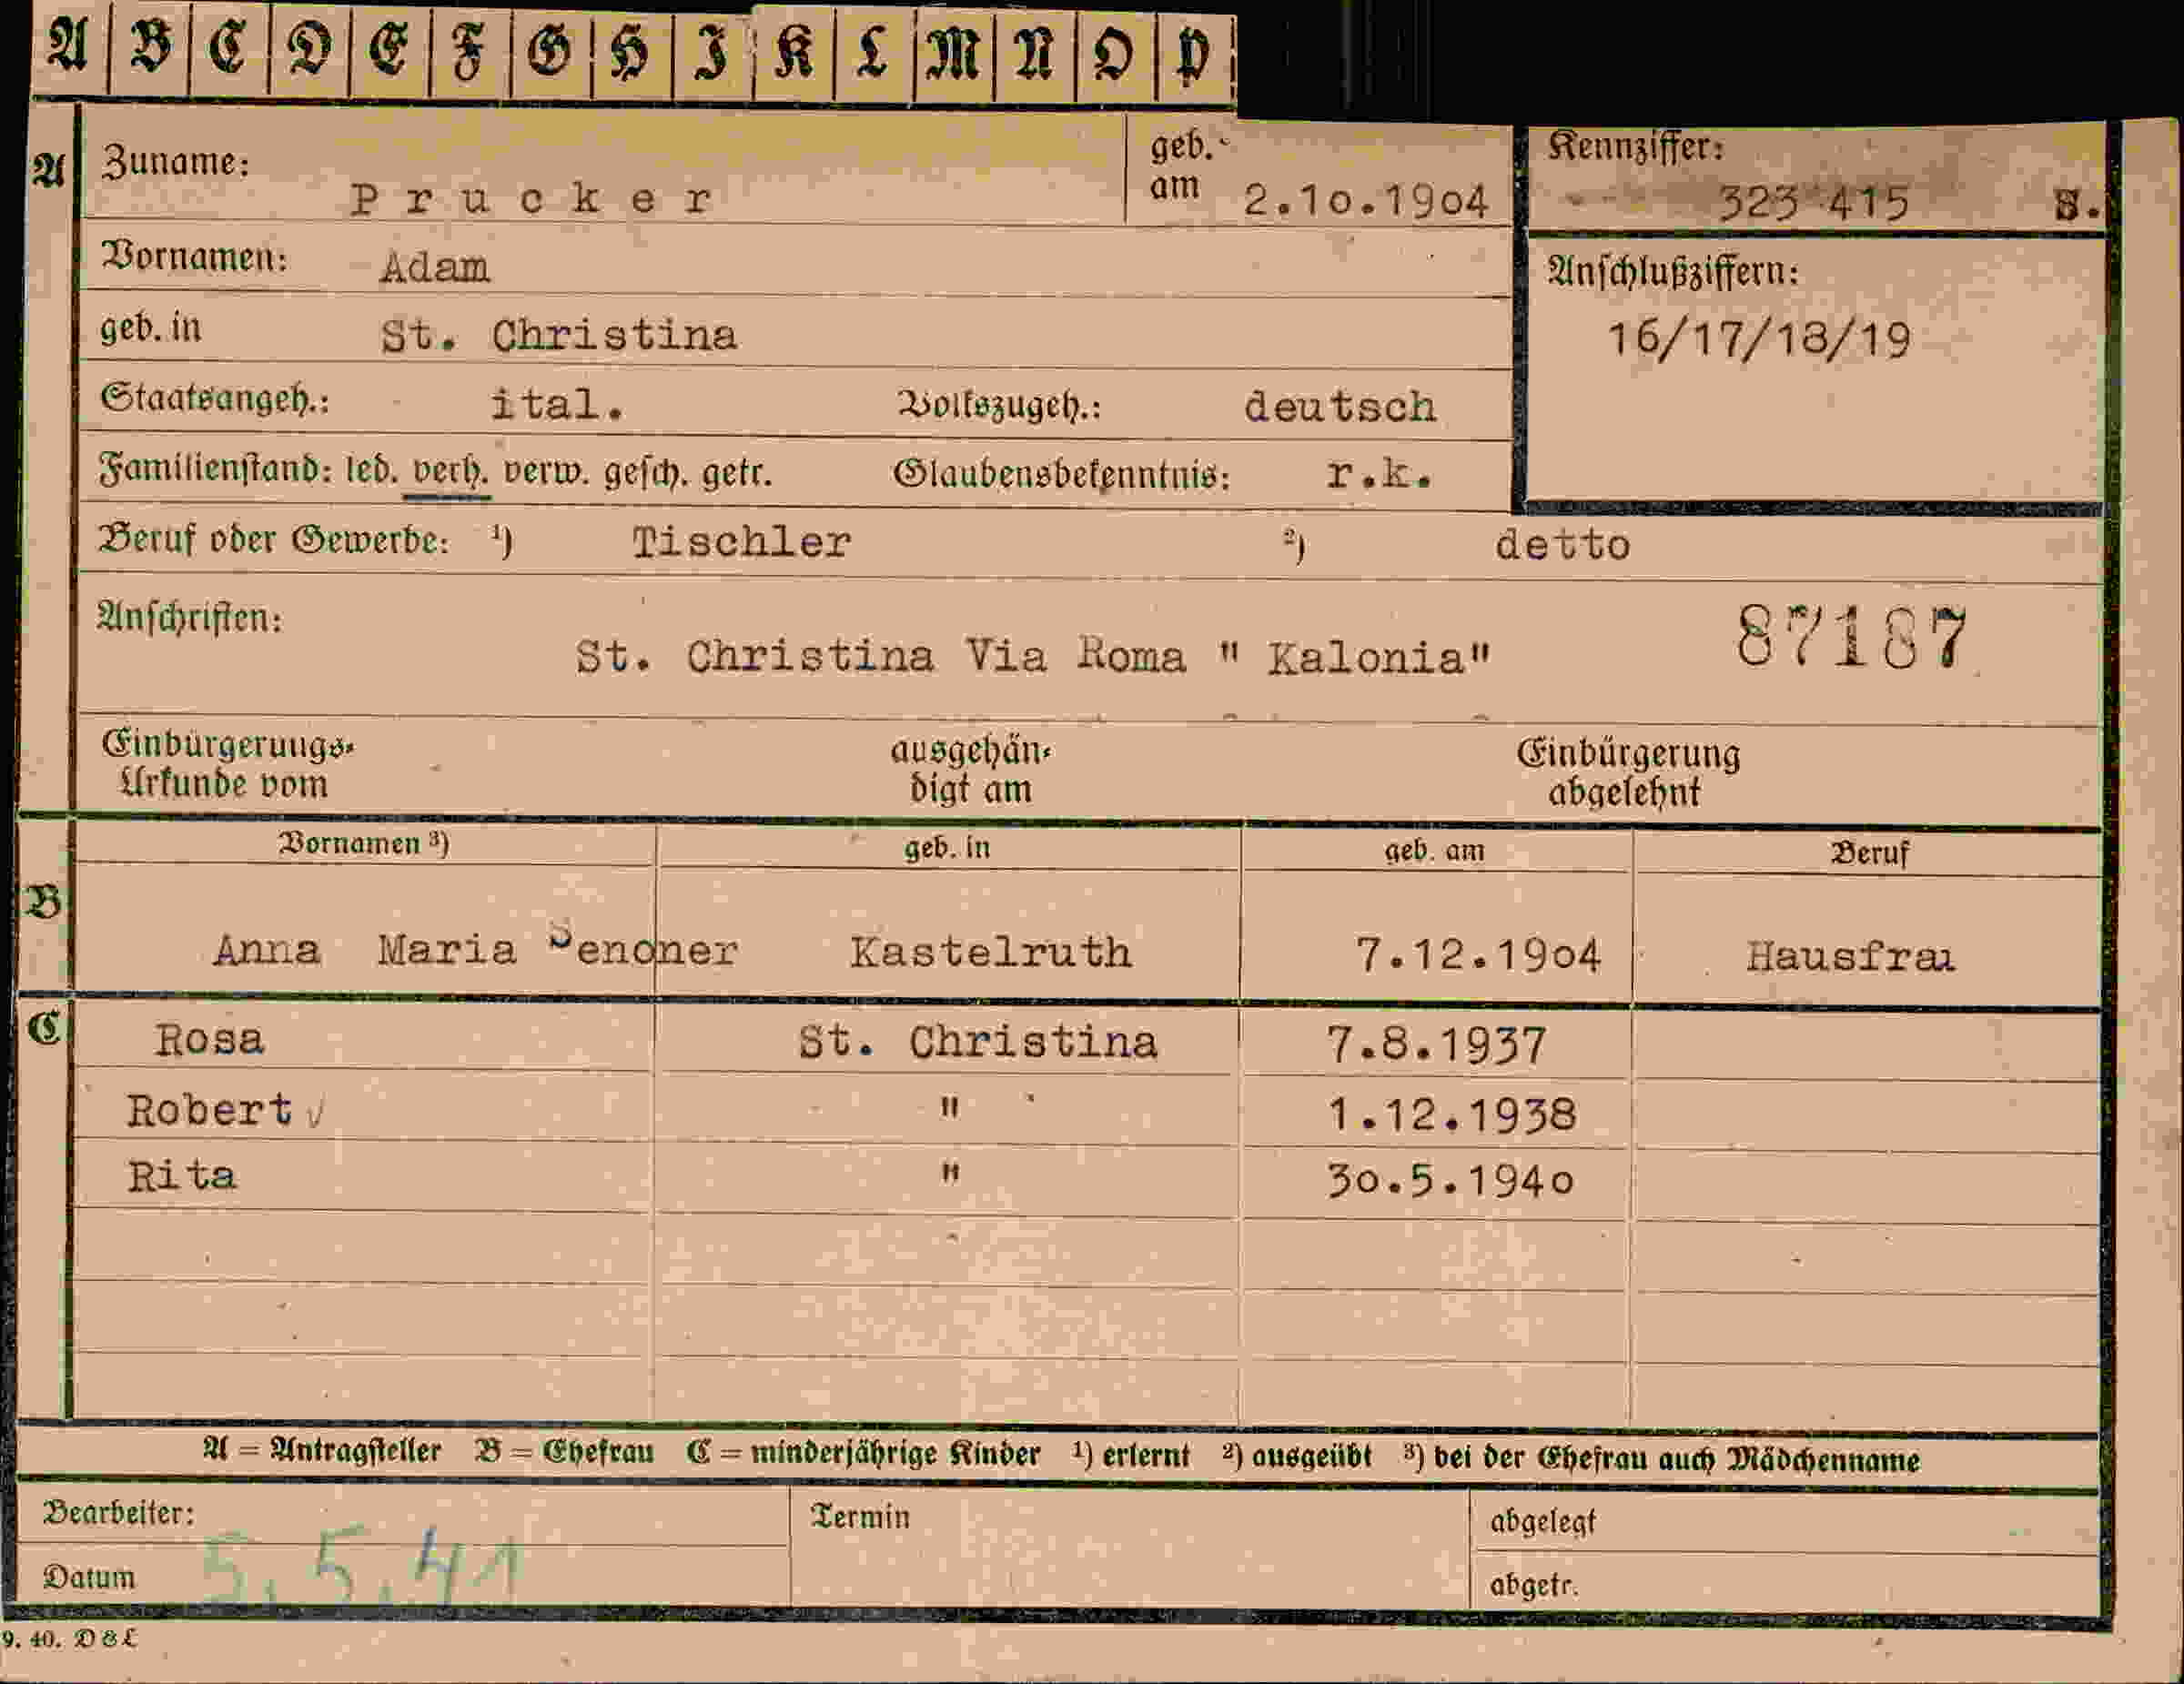 A B C D E F G H I K L M N O P
A Zuname: Prucker geb. am 2.10.1904 Kennziffer: 323 415 S.
Vornamen: Adam Anschlußziffern:
geb. in St. Christina 16/17/18/19
Staatsangeh.: ital. Volkszugeh.: deutsch
Familienstand: led. verh. verw. gesch. getr. Glaubensbekenntnis: r.k.
Beruf oder Gewerbe: 1) Tischler 2) detto
Anschriften: 87187
St. Christina Via Roma " Kalonia"
Einbürgerungs- ausgehän- Einbürgerung
Urkunde vom digt am abgelehnt
Vornamen 3) geb. in geb. am Beruf
B
Anna Maria Kastelruth 7.12.1904 Hausfrau
C Rosa St. Christina 7.8.1937
Robert " 1.12.1938
Rita " 30.5.1940
A = Antragsteller B = Ehefrau C = minderjährige Kinder 1) erlernt 2) ausgeübt 3) bei der Ehefrau auch Mädchenname
Bearbeiter: Termin abgelegt
Datum 5.5.41 abgetr.
9. 40. D & L